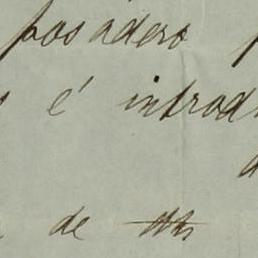 posadero
é introd
de